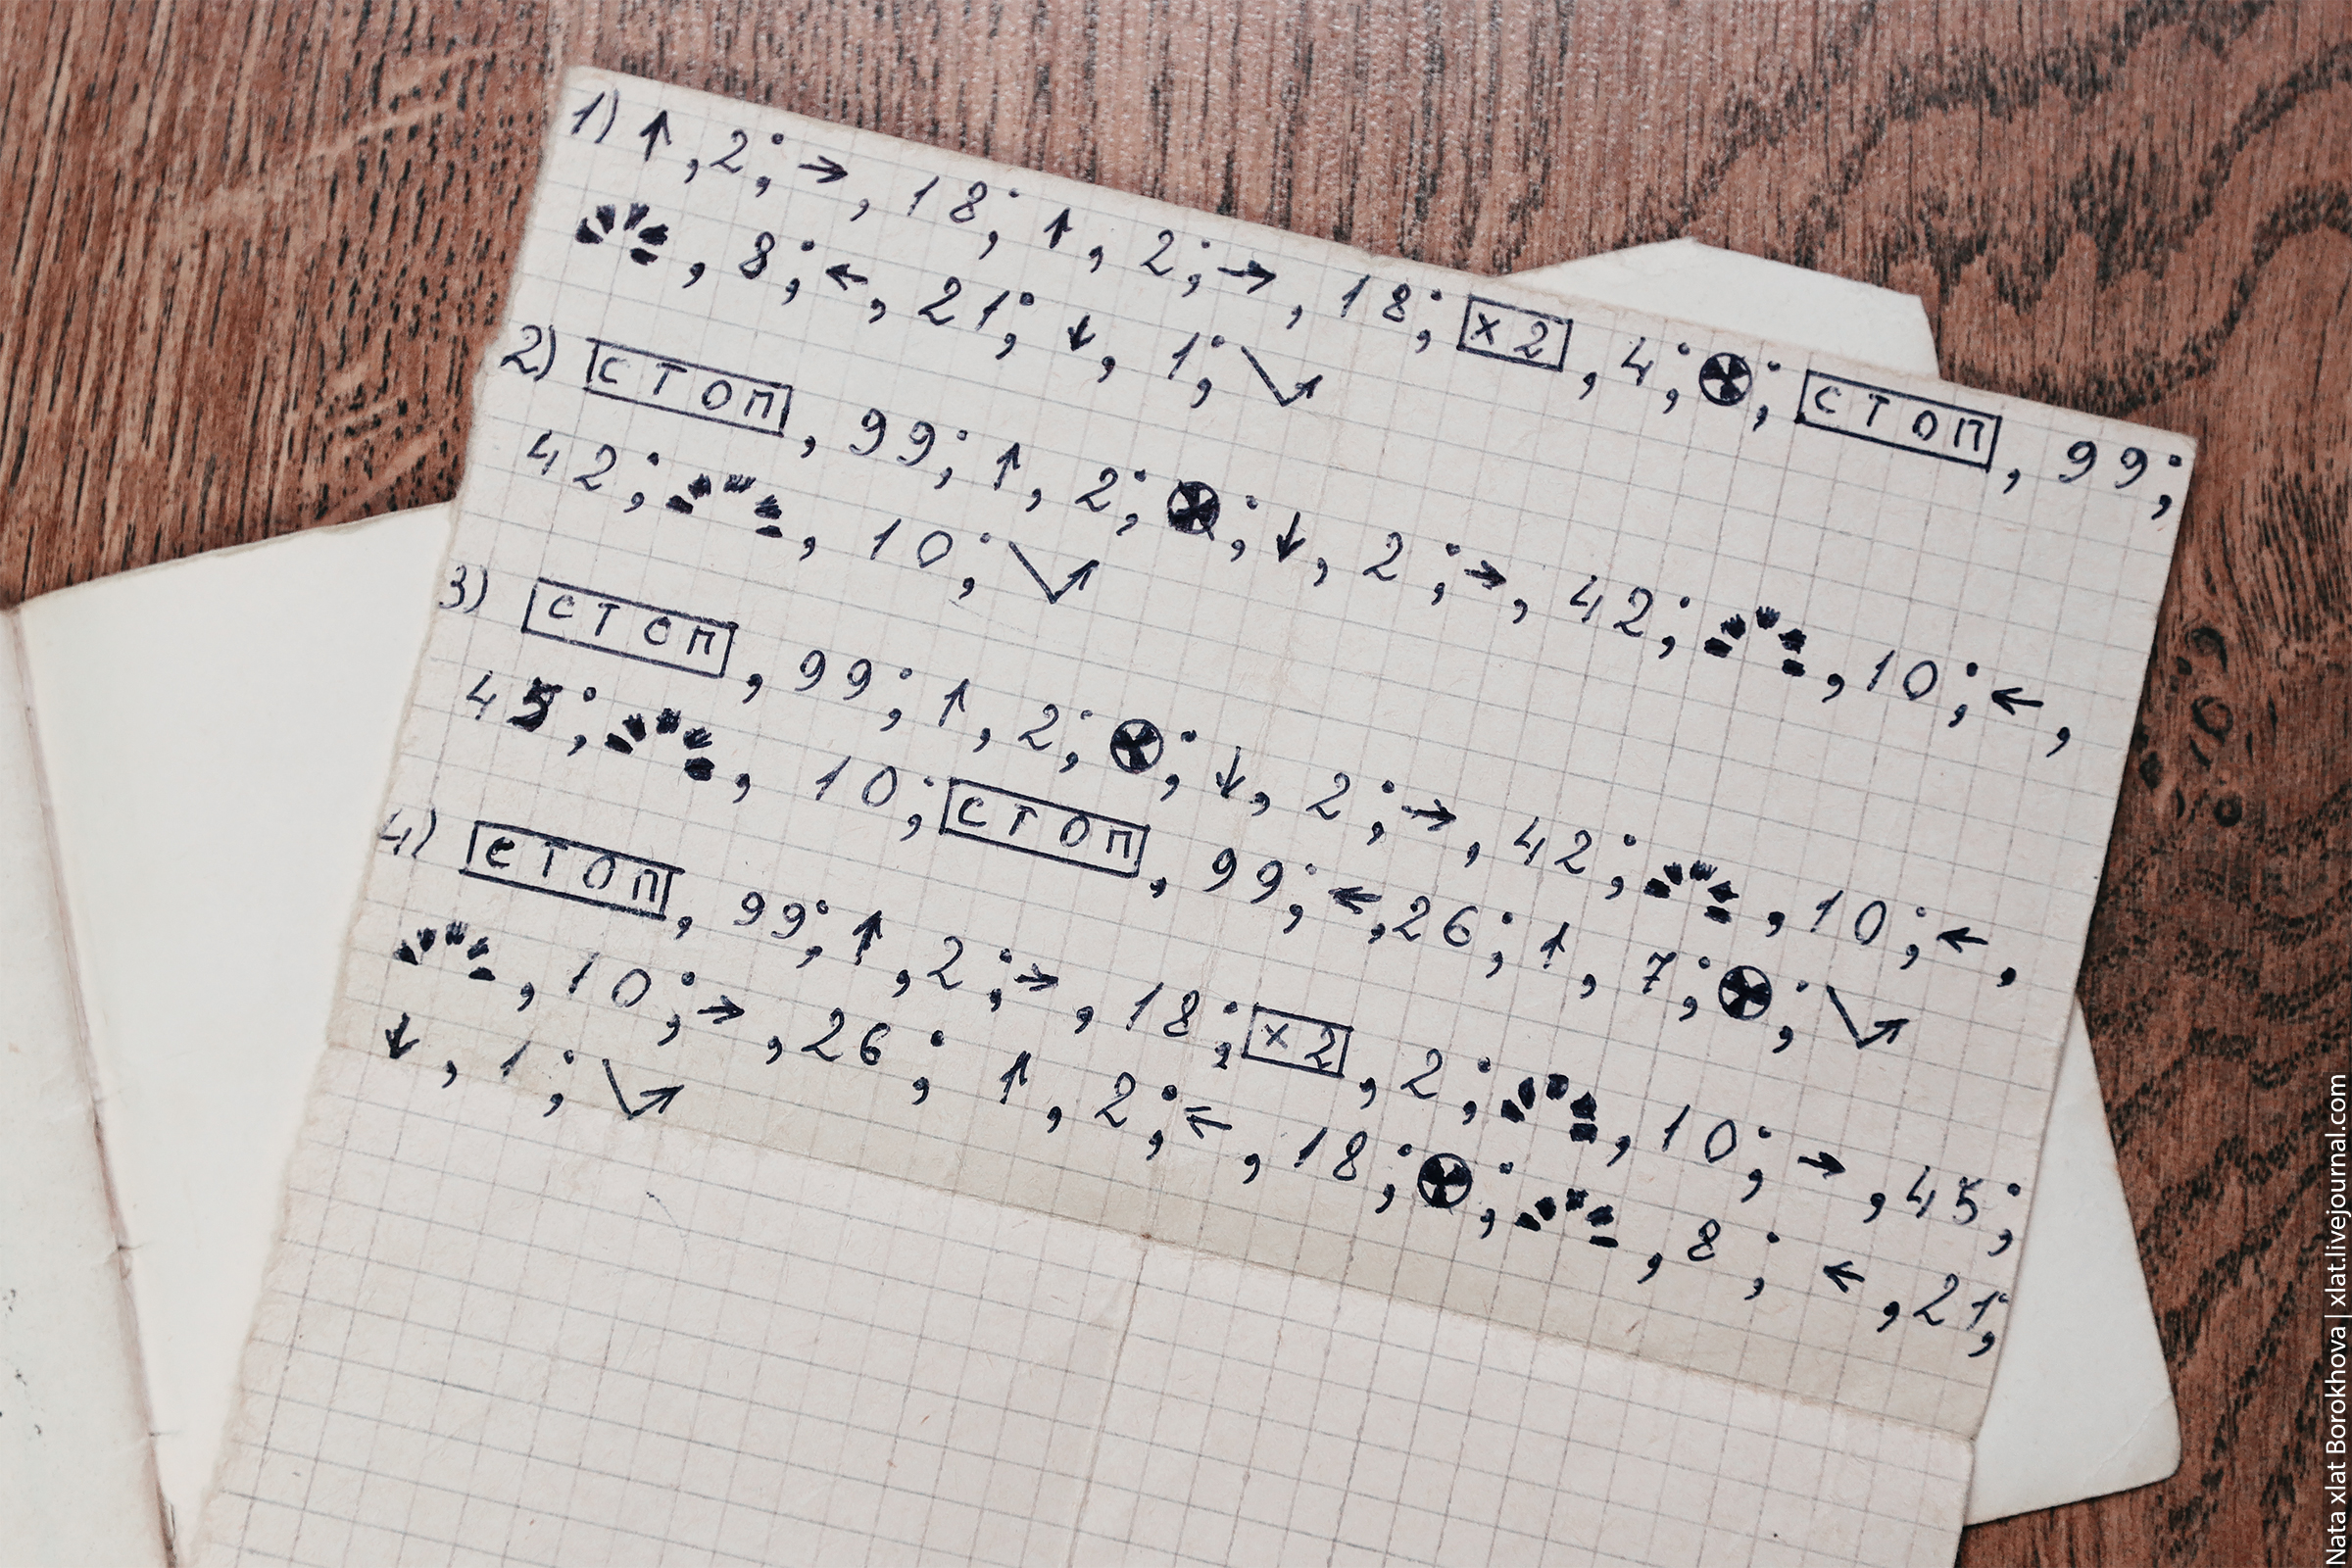 1) ↑, 2; →, 18; ↑, 2; →, 18; x2, 4; ☢; СТОП, 99;
, 8; ←, 21; ↓, 1;
2) СТОП, 99; ↑, 2; ☢; ↓, 2; →, 42; , 10; ←,
42; , 10;
3) СТОП, 99; ↑, 2; ☢; ↓, 2; →, 42; , 10; ←,
45; , 10; СТОП, 99; ←, 26; ↑, 7; ☢;
4) СТОП, 99; ↑, 2; →, 18; x2, 2; , 10; →, 45;
, 10; →, 26; ↑, 2; ←, 18; ☢; , 8; ←, 21;
↓, 1;
Nata xlat Borokhova | xlat.livejournal.com